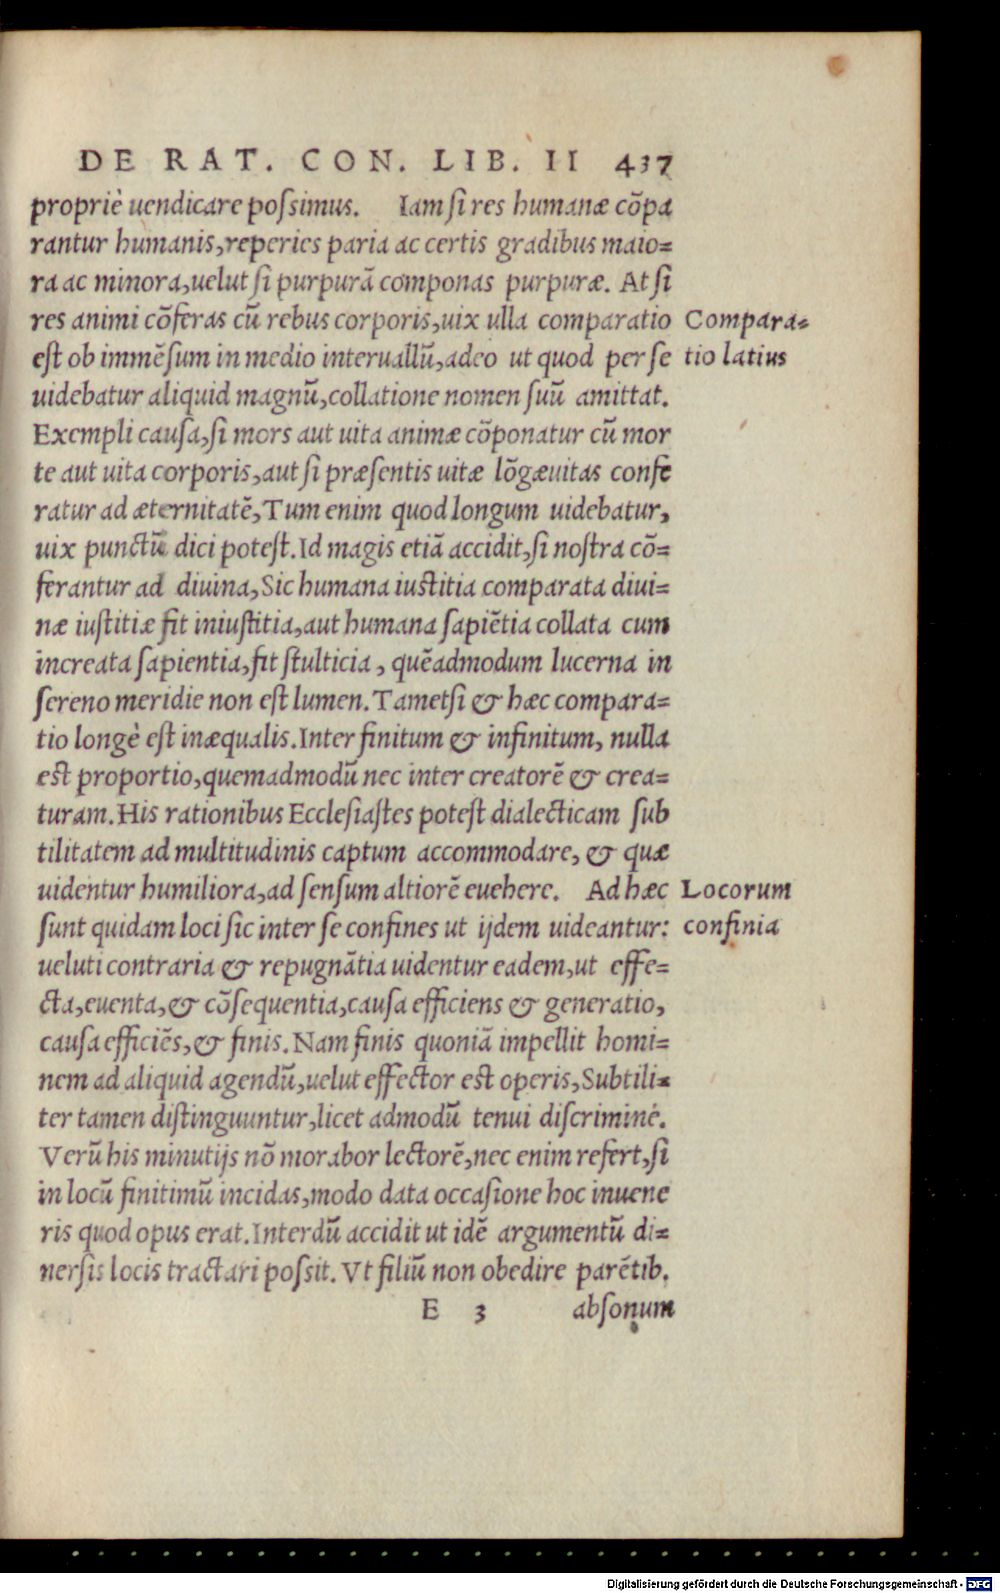 DE RAT. CON. LIB. II 437
propriè uendicare poſsimus. Iam ſi res humanæ cõpa
rantur humanis,reperies paria ac certis gradibus maio=
ra ac minora,uelut ſi purpurã componas purpuræ. At ſi
res animi cõferas cũ rebus corporis,uix ulla comparatio
Compara=
eſt ob immẽſum in medio interuallũ,adeo ut quod per ſe
tio latius
uidebatur aliquid magnũ,collatione nomen ſuũ amittat.
Exempli cauſa,ſi mors aut uita animæ cõponatur cũ mor
te aut uita corporis,aut ſi præſentis uitæ lõgæuitas confe
ratur ad æternitatẽ,Tum enim quod longum uidebatur,
uix punctũ dici poteſt.Id magis etiã accidit,ſi noſtra cõ=
ferantur ad diuina,Sic humana iuſtitia comparata diui=
næ iuſtitiæ fit iniuſtitia,aut humana ſapiẽtia collata cum
increata ſapientia,fit ſtulticia, quẽadmodum lucerna in
ſereno meridie non eſt lumen.Tametſi & hæc compara=
tio longè eſt inæqualis.Inter finitum & infinitum, nulla
eſt proportio,quemadmodũ nec inter creatorẽ & crea=
turam.His rationibus Eccleſiaſtes poteſt dialecticam ſub
tilitatem ad multitudinis captum accommodare, & quæ
uidentur humiliora,ad ſenſum altiorẽ euehere. Ad hæc
Locorum
ſunt quidam loci ſic inter ſe confines ut ijdem uideantur:
confinia
ueluti contraria & repugnãtia uidentur eadem,ut effe=
cta,euenta,& cõſequentia,cauſa efficiens & generatio,
cauſa efficiẽs,& finis.Nam finis quoniã impellit homi=
nem ad aliquid agendũ,uelut effector eſt operis,Subtili=
ter tamen diſtinguuntur,licet admodũ tenui diſcrimine.
Verũ his minutijs nõ morabor lectorẽ,nec enim refert,ſi
in locũ finitimũ incidas,modo data occaſione hoc inuene
ris quod opus erat.Interdũ accidit ut idẽ argumentũ di=
nerſis locis tractari poſsit. Vt filiũ non obedire parẽtib.
E 3 abſonum
Digitalisierung gefördert durch die Deutsche Forschungsgemeinschaft - DFG